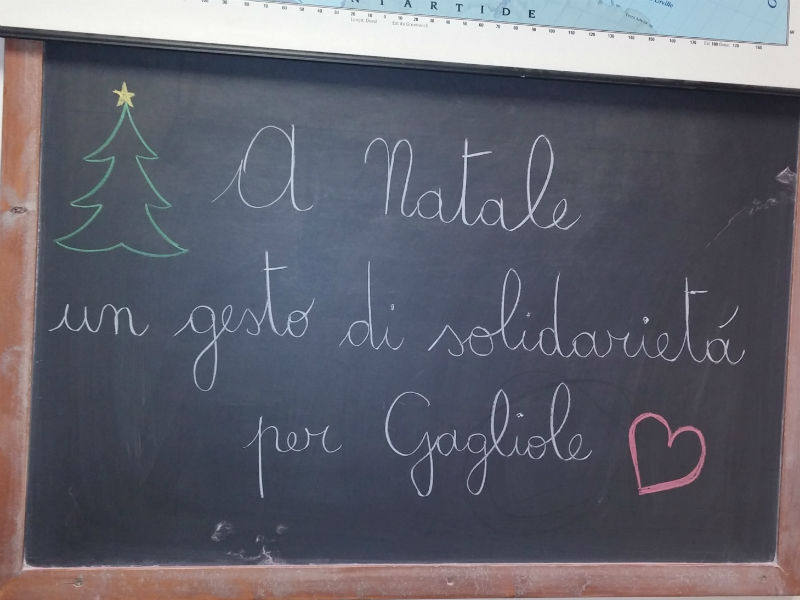 ANTARTIDE
A Natale
un gesto di solidarietá
per Gagliole